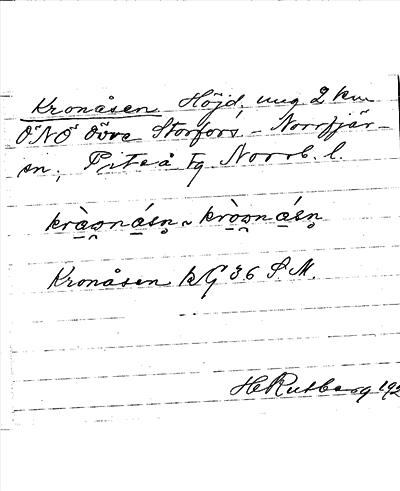 Kronåsen Höjd, ung 2 km
ÖNÖ Övre Storfors – Norrfjär-
en; Piteå tg Norrb. l.
Kronåsen kG 36 S.M.
H Rutberg 192